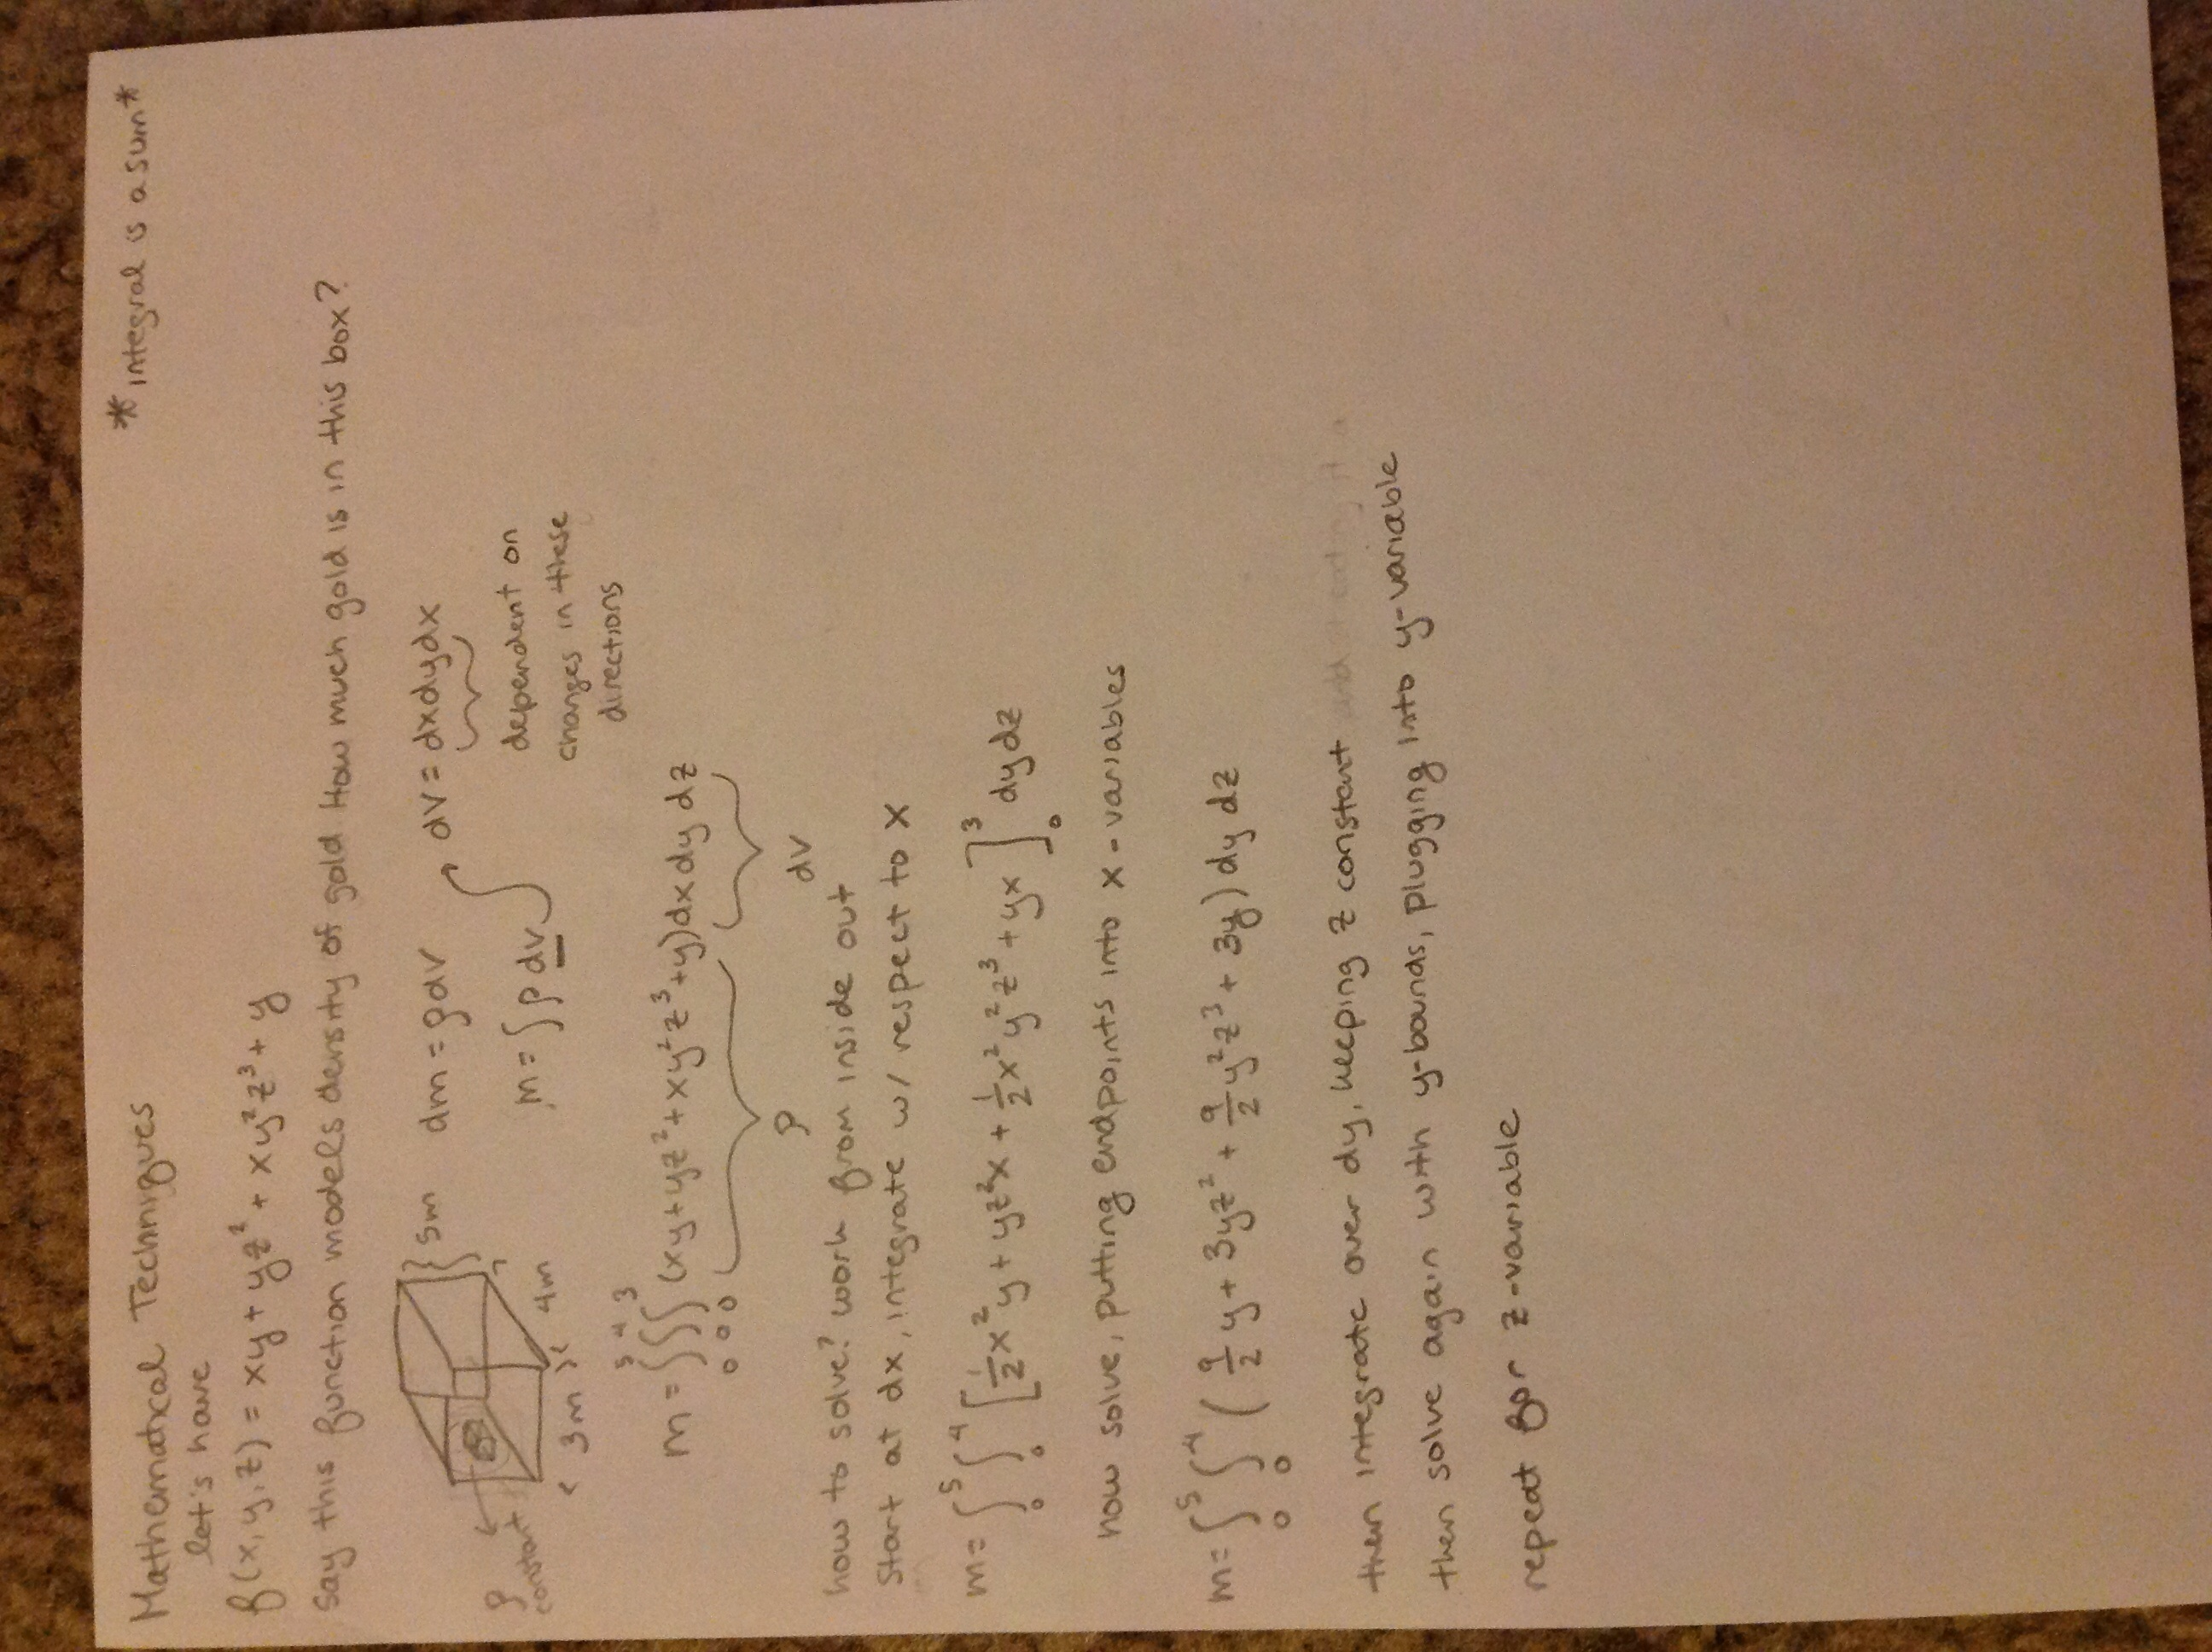 Mathematical Techniques
*integral is a sum*
let's have
f(x,y,z) = xy + yz² + xy²z³ + y
Say this function models density of gold How much gold is in this box?
5m
4m
3m
ρ
constant
dm = ρdV
m = ∫ρ dV
dV = dxdydx
dependent on
changes in these
directions
m = ∫₀⁵∫₀⁴∫₀³ (xy + yz² + xy²z³ + y)dxdydz
ρ
dV
how to solve? work from inside out
Start at dx, integrate w/ respect to x
m = ∫₀⁵∫₀⁴ [½x²y + yz²x + ½x²y²z³ + yx]₀³ dydz
now solve, putting endpoints into x-variables
m = ∫₀⁵∫₀⁴ (9/2 y + 3yz² + 9/2 y²z³ + 3y) dy dz
then integrate over dy, keeping z constant
then solve again with y-bounds, plugging into y-variable
repeat for z-variable